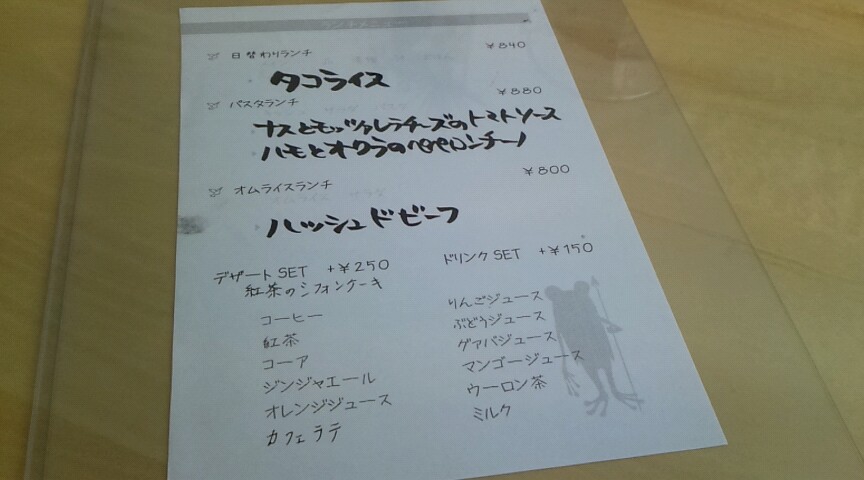 ランチメニュー
日替わりランチ ¥840
タコライス
パスタランチ ¥880
ナスとモッツァレラチーズのトマトソース
ハモとオクラのペペロンチーノ
オムライスランチ ¥800
ハッシュドビーフ
デザートSET +¥250
紅茶のシフォンケーキ
ドリンクSET +¥150
コーヒー
紅茶
コーア
ジンジャエール
オレンジジュース
カフェラテ
りんごジュース
ぶどうジュース
グァバジュース
マンゴージュース
ウーロン茶
ミルク